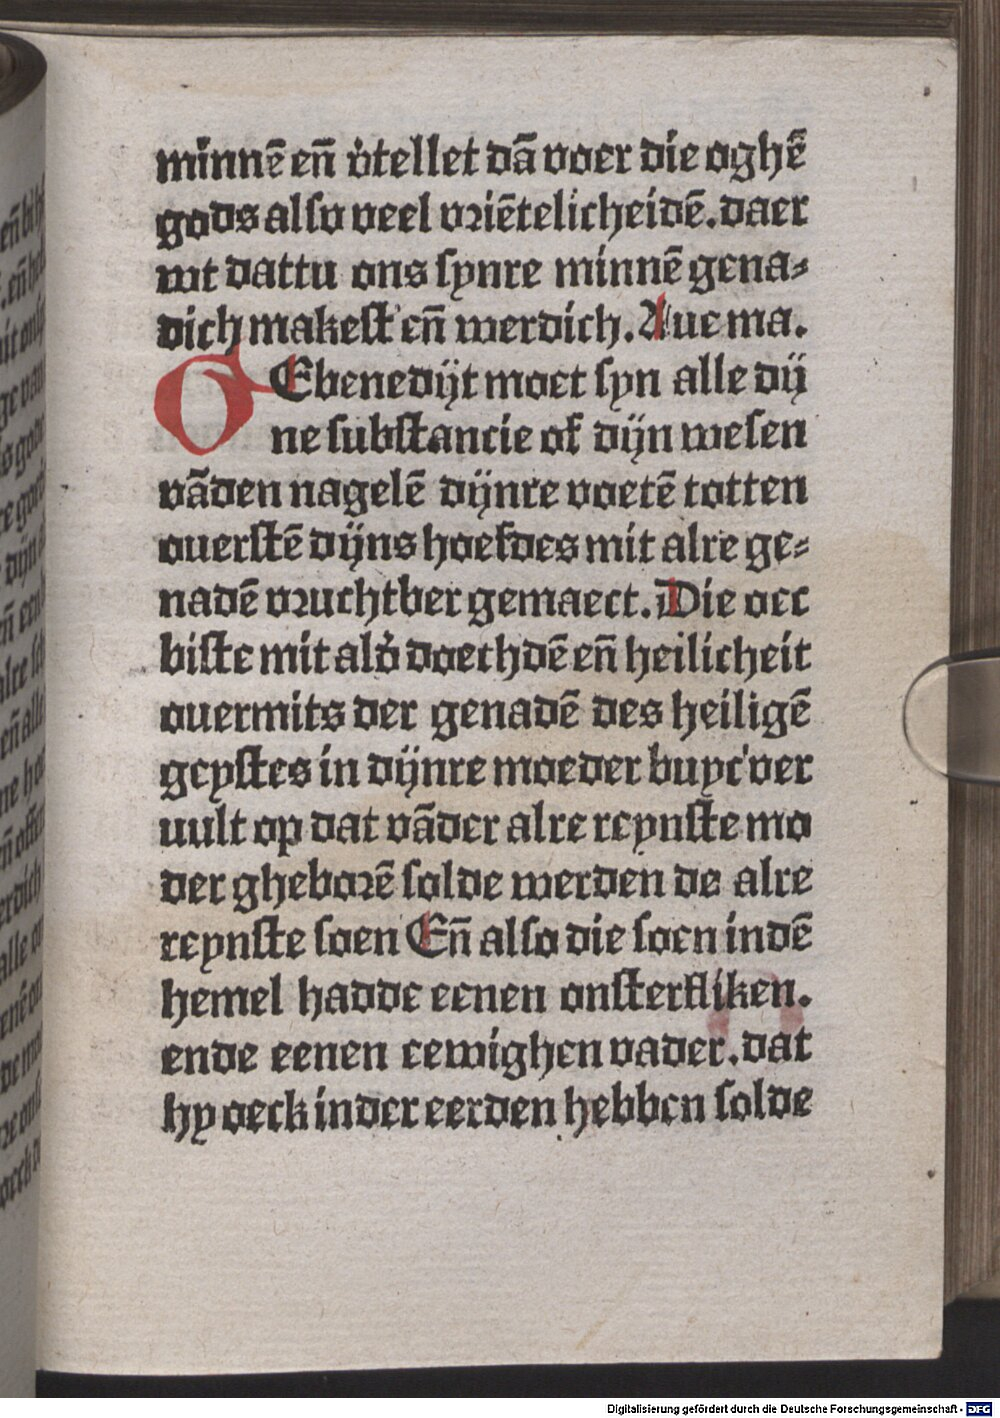 minnē en̄ v̓tellet dā voer die oghē
gods also veel vriētelicheidē. daer
wt dattu ons synre minnē gena⸗
dich makest en̄ werdich. Aue ma.
GEbenedijt moet syn alle dij
ne substancie of dijn wesen
vāden nagelē dijnre voetē totten
ouerstē dijns hoefdes mit alre ge⸗
nadē vruchtber gemaect. Die oec
biste mit alᵭ doechdē en̄ heilicheit
ouermits der genadē des heiligē
geystes in dijnre moeder buyc ver
uult op dat vāder alre reynste mo
der gheborē solde werden de alre
reynste soen En̄ also die soen indē
hemel hadde eenen onsterflijken.
ende eenen eewighen vader. dat
hy oeck inder eerden hebben solde
Digitalisierung gefördert durch die Deutsche Forschungsgemeinschaft - DFG